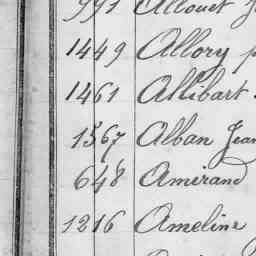 991 Allouet
1449 Allory
1461 Allibart
1567 Alban Jean
648 Amérand
1216 Ameline